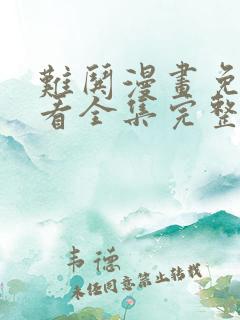 難鬨漫畫免
看全集完整
韦德
未经同意禁止转载